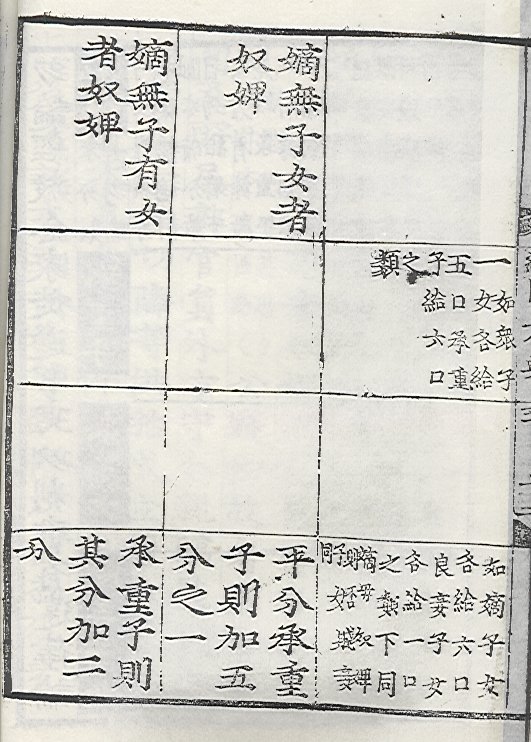 一
如衆子
女各給
五口承重
子給六口
之
類
如嫡子女
各給六口
良妾子女
各給一口
之類下同
嫡母奴婢
同
嫡無子女者
奴婢
平分承重
子則加五
分之一
嫡無子有女
者奴婢
承重子則
其分加二
分